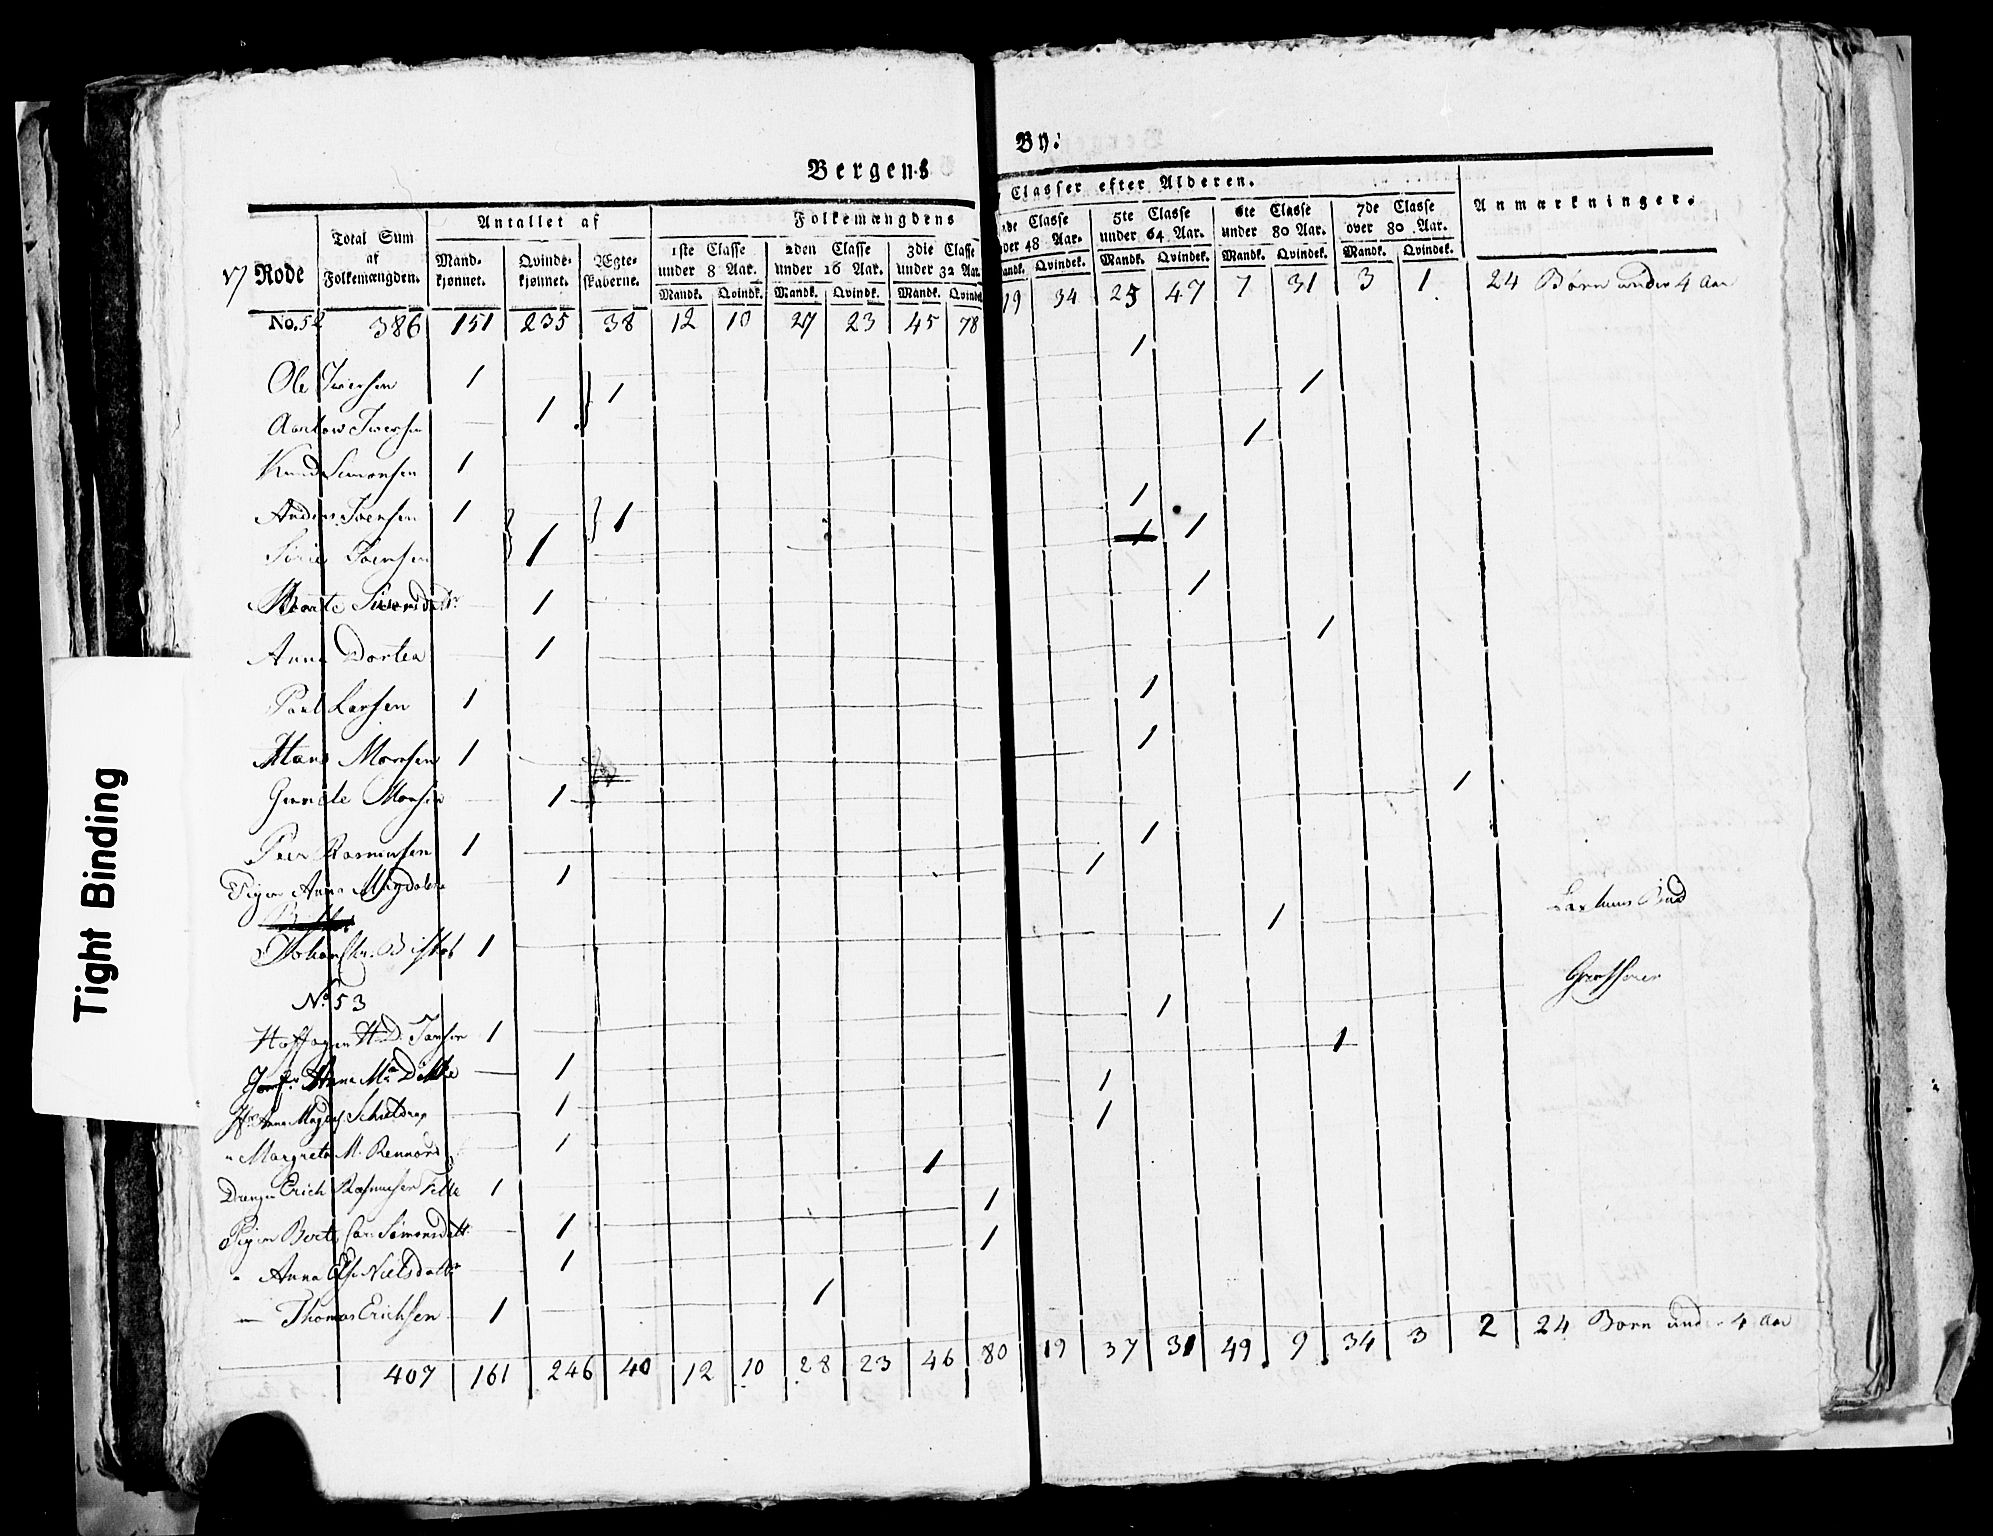 Bergens By:
Antallet af Folkemængdens Classer efter Alderen. Anmærkninger.
17 Rode Total Sum af Folkemængden. Mand-kjønnet. Qvinde-kjønnet. Ægte-skaberne. 1ste Classe under 8 Aar. 2den Classe under 16 Aar. 3die Classe under 32 Aar. Classe 48 Aar. 5te Classe under 64 Aar. 6te Classe under 80 Aar. 7de Classe over 80 Aar.
Mandk. Qvindk. Mandk. Qvindk. Mandk. Qvindek. Mandk. Qvindek. Mandk. Qvindek. Mandk. Qvindek. Mandk. Qvindek.
No. 52 386 151 235 38 12 10 27 23 45 78 19 34 25 47 7 31 3 1 24 Børn under 4 Aar
Ole Iversen 1 1 1
Iversen 1 1
Knud Simonsen 1 1
Anders Iversen 1 1 1
Iversen 1 1 1
1 1
Anna Dortea 1 1
Paul Larsen 1 1
Hans Monsen 1 1
Monsen 1 1
Peer Rasmusen 1 1
Pigen Anna Magdalena 1 1
Johan Chr. Biskob 1 1 Bud
No 53
Jansen 1 1 Grosserer
Anna Ma 1 1
Jfr Anna Magd. 1 1
" Margreta M. Rennord 1 1
Drengen Erich Rasmusen 1 1
Pigen Berte Car. Simonsdatt. 1 1
" Anna Els. Nielsdattr 1 1
— Thomas Erichsen 1 1
407 161 246 40 12 10 28 23 46 80 19 37 31 49 9 34 3 2 24 Børn under 4 Aar
Tight Binding